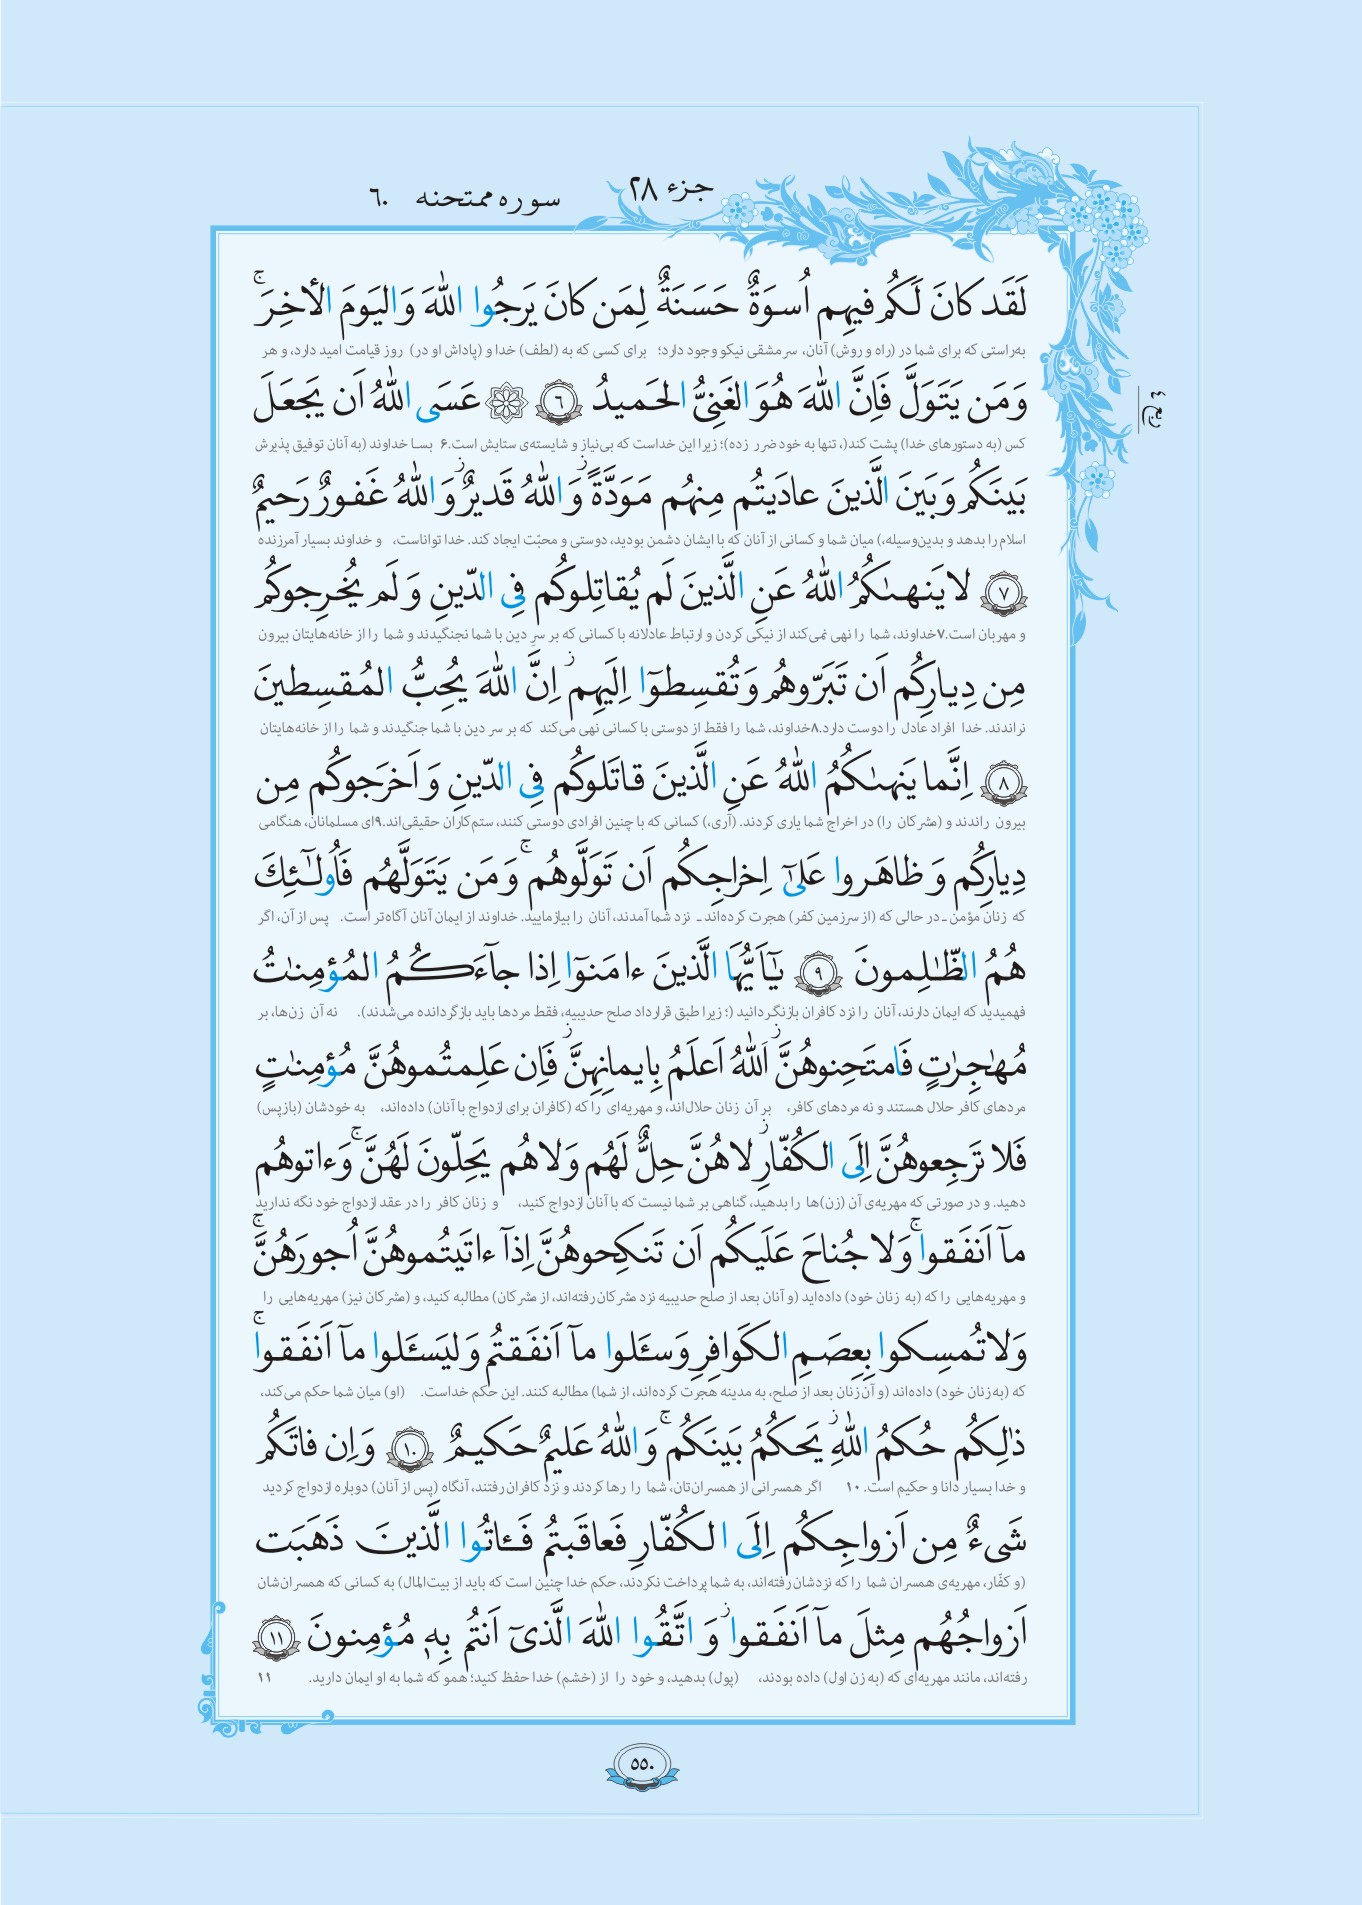 جزء ۲۸
سوره ممتحنه ۶۰
ربع ۴
لَقَد كانَ لَكُم فيهِم اُسوَةٌ حَسَنَةٌ لِمَن كانَ يَرجُوا اللّٰهَ وَاليَومَ الأخِرَ ۚ
به‌راستی که برای شما در (راه و روش) آنان، سرمشقی نیکو وجود دارد؛ برای کسی که به (لطف) خدا و (پاداش او در) روز قیامت امید دارد، و هر
وَمَن يَتَوَلَّ فَاِنَّ اللّٰهَ هُوَ الغَنِىُّ الحَميدُ ﴿٦﴾ ۞ عَسَى اللّٰهُ اَن يَجعَلَ
کس (به دستورهای خدا) پشت کند(، تنها به خود ضرر زده)؛ زیرا این خداست که بی‌نیاز و شایسته‌ی ستایش است.۶ بسا خداوند (به آنان توفیق پذیرش
بَينَكُم وَبَينَ الَّذينَ عادَيتُم مِنهُم مَوَدَّةً ز وَاللّٰهُ قَديرٌ ز وَاللّٰهُ غَفورٌ رَحيمٌ
اسلام را بدهد و بدین‌وسیله،) میان شما و کسانی از آنان که با ایشان دشمن بودید، دوستی و محبّت ایجاد کند. خدا تواناست، و خداوند بسیار آمرزنده
﴿٧﴾ لا يَنهىٰكُمُ اللّٰهُ عَنِ الَّذينَ لَم يُقاتِلوكُم فِى الدّينِ وَلَم يُخرِجوكُم
و مهربان است.۷خداوند، شما را نهی نمی‌کند از نیکی کردن و ارتباط عادلانه با کسانی که بر سرِ دین با شما نجنگیدند و شما را از خانه‌هایتان بیرون
مِن دِيارِكُم اَن تَبَرّوهُم وَتُقسِطوٓا اِلَيهِم ز اِنَّ اللّٰهَ يُحِبُّ المُقسِطينَ
نراندند. خدا افراد عادل را دوست دارد.۸خداوند، شما را فقط از دوستی با کسانی نهی می‌کند که بر سر دین با شما جنگیدند و شما را از خانه‌هایتان
﴿٨﴾ اِنَّما يَنهىٰكُمُ اللّٰهُ عَنِ الَّذينَ قاتَلوكُم فِى الدّينِ وَاَخرَجوكُم مِن
بیرون راندند و (مشرکان را) در اخراج شما یاری کردند. (آری،) کسانی که با چنین افرادی دوستی کنند، ستم‌کاران حقیقی‌اند.۹ای مسلمانان، هنگامی
دِيارِكُم وَظاهَروا عَلىٰٓ اِخراجِكُم اَن تَوَلَّوهُم ۚ وَمَن يَتَوَلَّهُم فَاُولٰٓئِكَ
که زنان مؤمن ـ در حالی که (از سرزمین کفر) هجرت کرده‌اند ـ نزد شما آمدند، آنان را بیازمایید. خداوند از ایمان آنان آگاه‌تر است. پس از آن، اگر
هُمُ الظّٰلِمونَ ﴿٩﴾ يٰٓاَيُّهَا الَّذينَ ءامَنوٓا اِذا جآءَكُمُ المُؤمِنٰتُ
فهمیدید که ایمان دارند، آنان را نزد کافران بازنگردانید (؛ زیرا طبق قرارداد صلح حدیبیه، فقط مردها باید بازگردانده می‌شدند). نه آن زن‌ها، بر
مُهٰجِرٰتٍ فَامتَحِنوهُنَّ ز اَللّٰهُ اَعلَمُ بِايمانِهِنَّ ز فَاِن عَلِمتُموهُنَّ مُؤمِنٰتٍ
مردهای کافر حلال هستند و نه مردهای کافر، بر آن زنان حلال‌اند، و مهریه‌ای را که (کافران برای ازدواج با آنان) داده‌اند، به خودشان (بازپس)
فَلا تَرجِعوهُنَّ اِلَى الكُفّارِ ز لا هُنَّ حِلٌّ لَهُم وَلا هُم يَحِلّونَ لَهُنَّ ۚ وَءاتوهُم
دهید. و در صورتی که مهریه‌ی آن (زن)ها را بدهید، گناهی بر شما نیست که با آنان ازدواج کنید، و زنان کافر را در عقد ازدواج خود نگه ندارید
مآ اَنفَقوا ۚ وَلا جُناحَ عَلَيكُم اَن تَنكِحوهُنَّ اِذآ ءاتَيتُموهُنَّ اُجورَهُنَّ ۚ
و مهریه‌هایی را که (به زنان خود) داده‌اید (و آنان بعد از صلح حدیبیه نزد مشرکان رفته‌اند، از مشرکان) مطالبه کنید، و (مشرکان نیز) مهریه‌هایی را
وَلا تُمسِكوا بِعِصَمِ الكَوافِرِ وَسئَلوا مآ اَنفَقتُم وَليَسئَلوا مآ اَنفَقوا ۚ
که (به زنان خود) داده‌اند (و آن زنان بعد از صلح، به مدینه هجرت کرده‌اند، از شما) مطالبه کنند. این حکم خداست. (او) میان شما حکم می‌کند،
ذٰلِكُم حُكمُ اللّٰهِ ز يَحكُمُ بَينَكُم ۚ وَاللّٰهُ عَليمٌ حَكيمٌ ﴿١٠﴾ وَاِن فاتَكُم
و خدا بسیار دانا و حکیم است. ۱۰ اگر همسرانی از همسران‌تان، شما را رها کردند و نزد کافران رفتند، آنگاه (پس از آنان) دوباره ازدواج کردید
شَىءٌ مِن اَزواجِكُم اِلَى الكُفّارِ فَعاقَبتُم فَـٔاتُوا الَّذينَ ذَهَبَت
(و کفّار، مهریه‌ی همسران شما را که نزدشان رفته‌اند، به شما پرداخت نکردند، حکم خدا چنین است که باید از بیت‌المال) به کسانی که همسران‌شان
اَزواجُهُم مِثلَ مآ اَنفَقوا ز وَاتَّقُوا اللّٰهَ الَّذىٓ اَنتُم بِهٖ مُؤمِنونَ ﴿١١﴾
رفته‌اند، مانند مهریه‌ای که (به زن اول) داده بودند، (پول) بدهید، و خود را از (خشم) خدا حفظ کنید؛ همو که شما به او ایمان دارید. ۱۱
۵۵۰